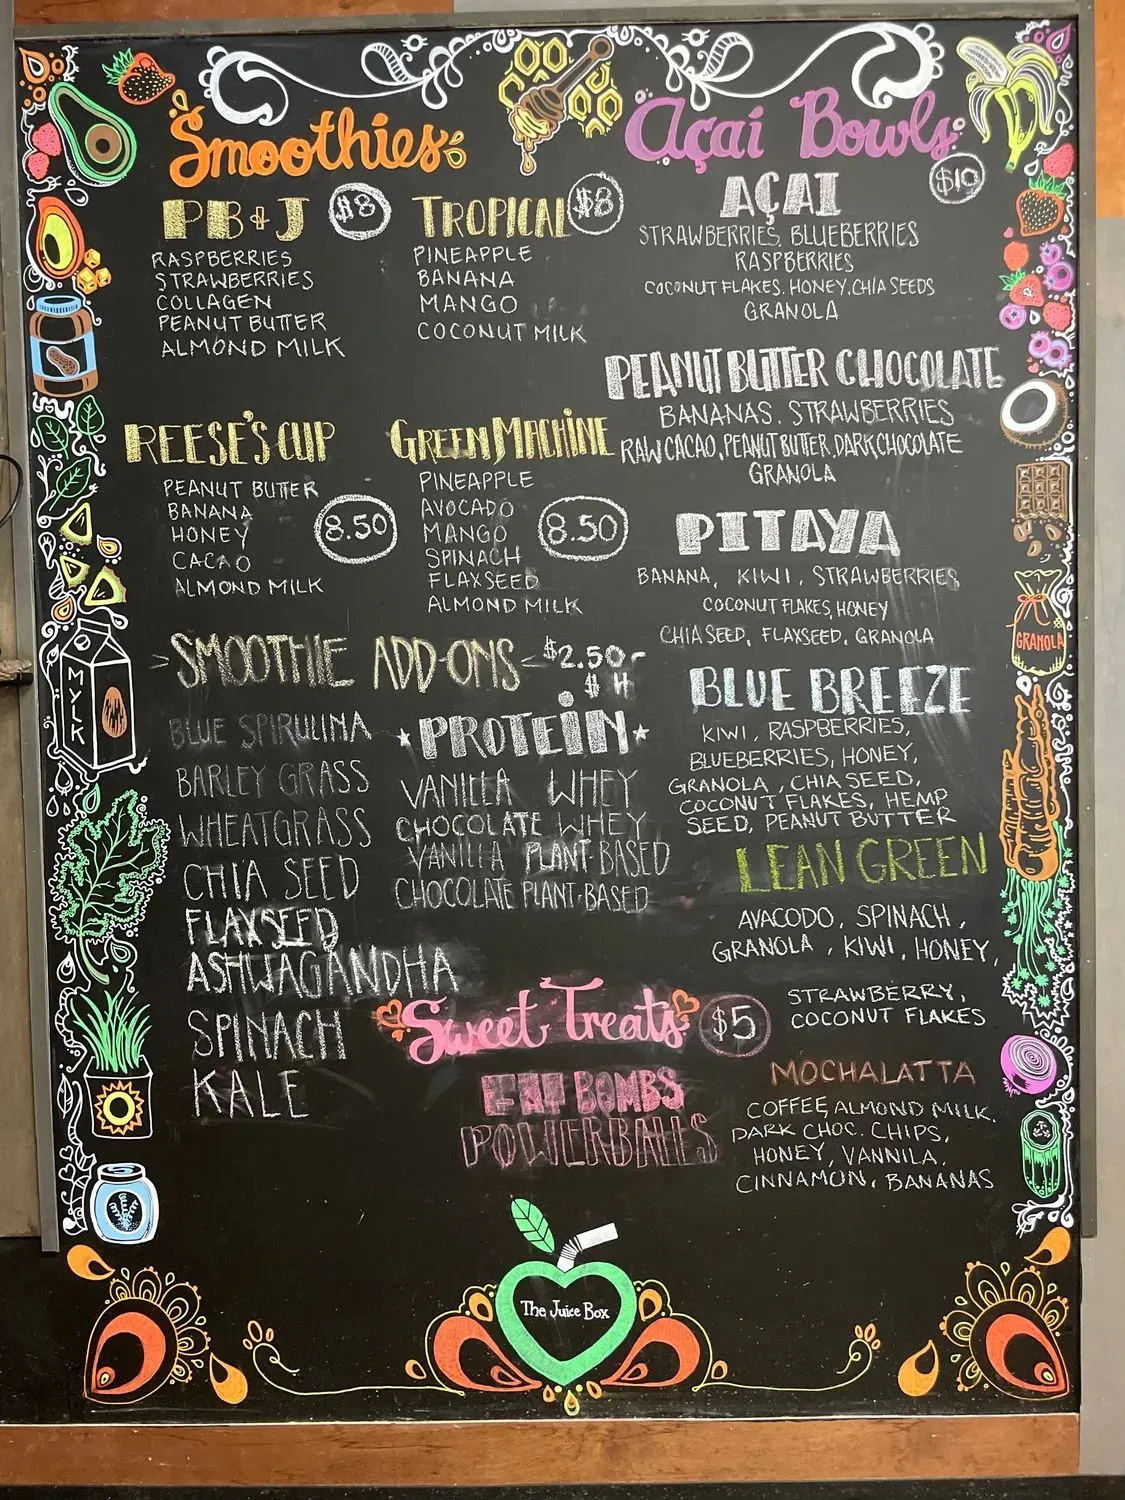 Smoothies
PB & J $8
RASPBERRIES
STRAWBERRIES
COLLAGEN
PEANUT BUTTER
ALMOND MILK
TROPICAL $8
PINEAPPLE
BANANA
MANGO
COCONUT MILK
REESE'S CUP
PEANUT BUTTER
BANANA
HONEY
CACAO
ALMOND MILK
8.50
GREEN MACHINE
PINEAPPLE
AVOCADO
MANGO
SPINACH
FLAXSEED
ALMOND MILK
8.50
SMOOTHIE ADD-ONS $2.50-
$4
BLUE SPIRULINA
BARLEY GRASS
WHEATGRASS
CHIA SEED
FLAXSEED
ASHWAGANDHA
SPINACH
KALE
PROTEIN
VANILLA WHEY
CHOCOLATE WHEY
VANILLA PLANT-BASED
CHOCOLATE PLANT-BASED
Sweet Treats $5
FAT BOMBS
POWERBALLS
Açaí Bowls
$10
AÇAI
STRAWBERRIES, BLUEBERRIES
RASPBERRIES
COCONUT FLAKES, HONEY, CHIA SEEDS
GRANOLA
PEANUT BUTTER CHOCOLATE
BANANAS, STRAWBERRIES
RAW CACAO, PEANUT BUTTER, DARK CHOCOLATE
GRANOLA
PITAYA
BANANA, KIWI, STRAWBERRIES,
COCONUT FLAKES, HONEY
CHIA SEED, FLAXSEED, GRANOLA
BLUE BREEZE
KIWI, RASPBERRIES,
BLUEBERRIES, HONEY,
GRANOLA, CHIA SEED,
COCONUT FLAKES, HEMP
SEED, PEANUT BUTTER
LEAN GREEN
AVACODO, SPINACH,
GRANOLA, KIWI, HONEY,
STRAWBERRY,
COCONUT FLAKES
MOCHALATTA
COFFEE, ALMOND MILK,
DARK CHOC. CHIPS,
HONEY, VANNILA,
CINNAMON, BANANAS
MYLK
GRANOLA
The Juice Box